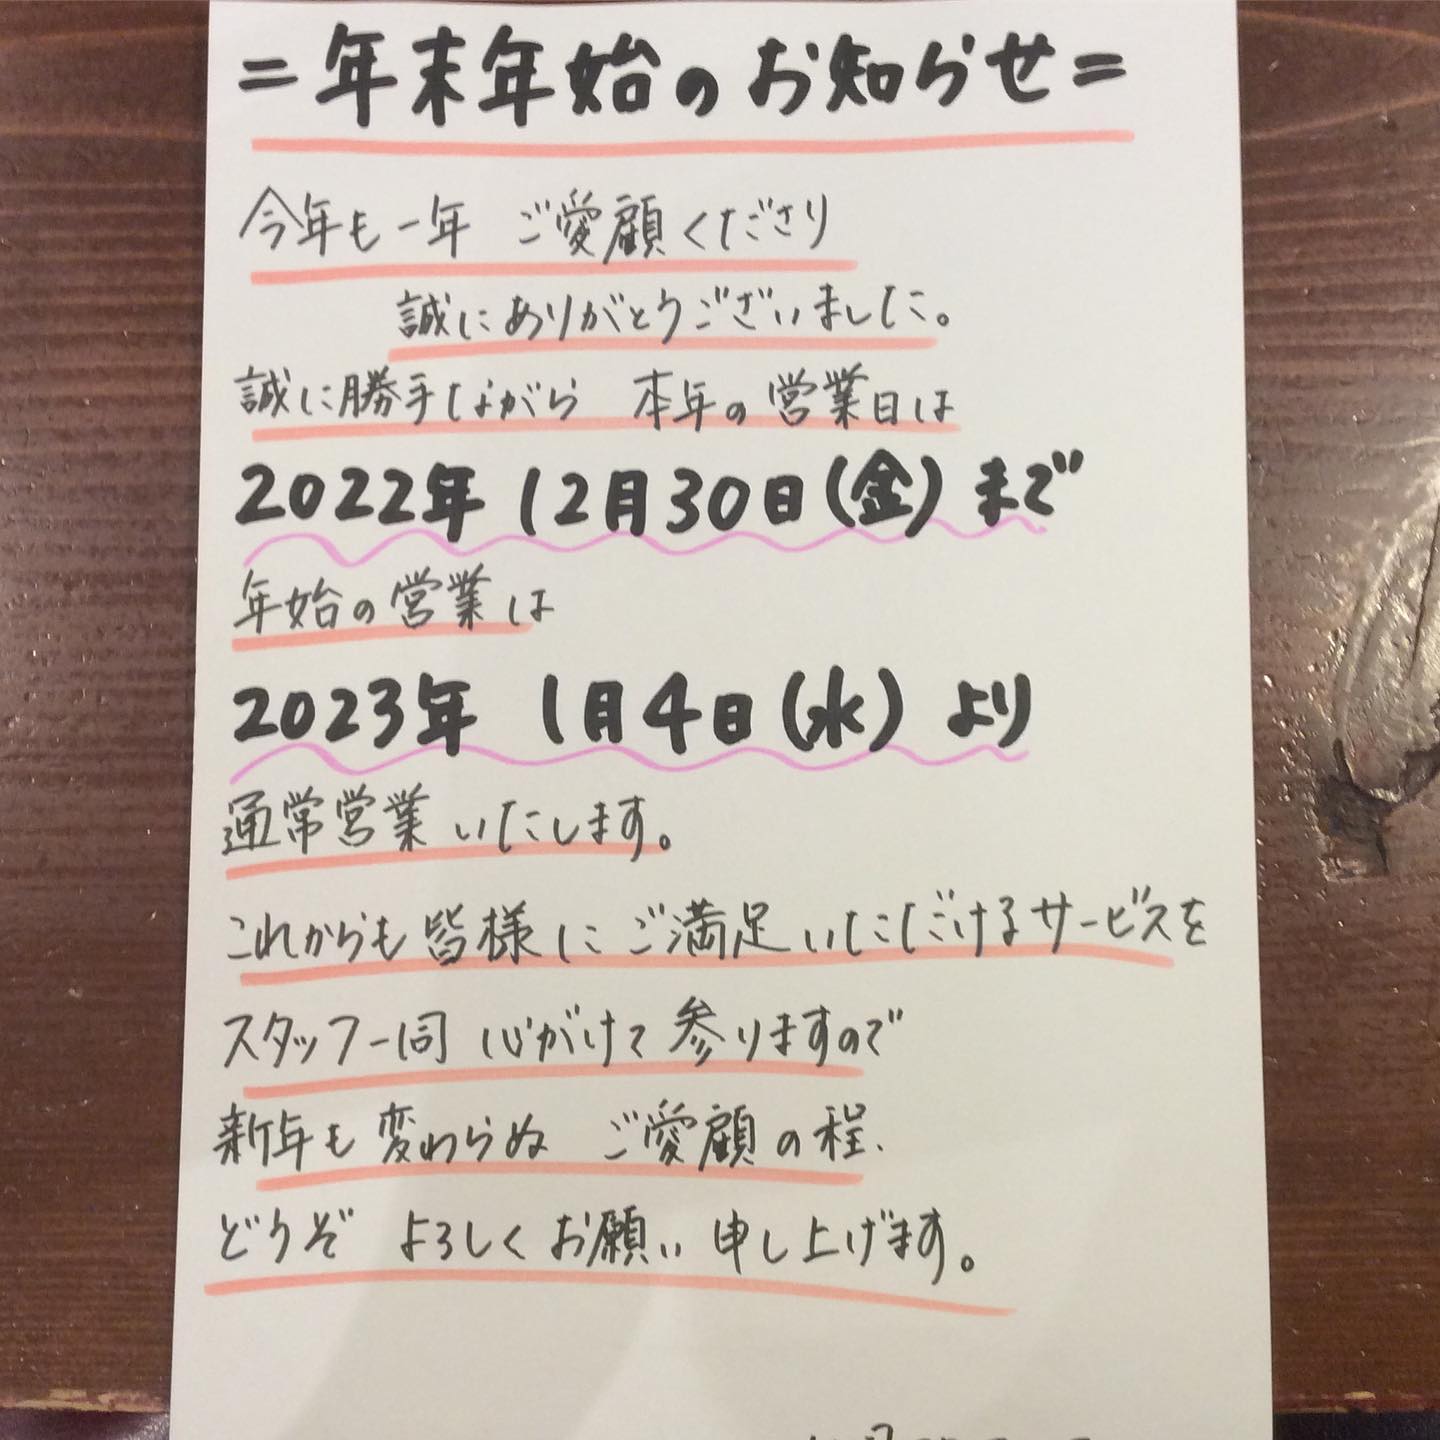 =年末年始のお知らせ=
今年も一年 ご愛顧くださり
誠にありがとうございました。
誠に勝手ながら 本年の営業日は
2022年 12月30日(金)まで
年始の営業は
2023年 1月4日(水)より
通常営業いたします。
これからも皆様にご満足いただけるサービスを
スタッフ一同 心がけて参りますので
新年も変わらぬ ご愛顧の程、
どうぞ よろしくお願い申し上げます。